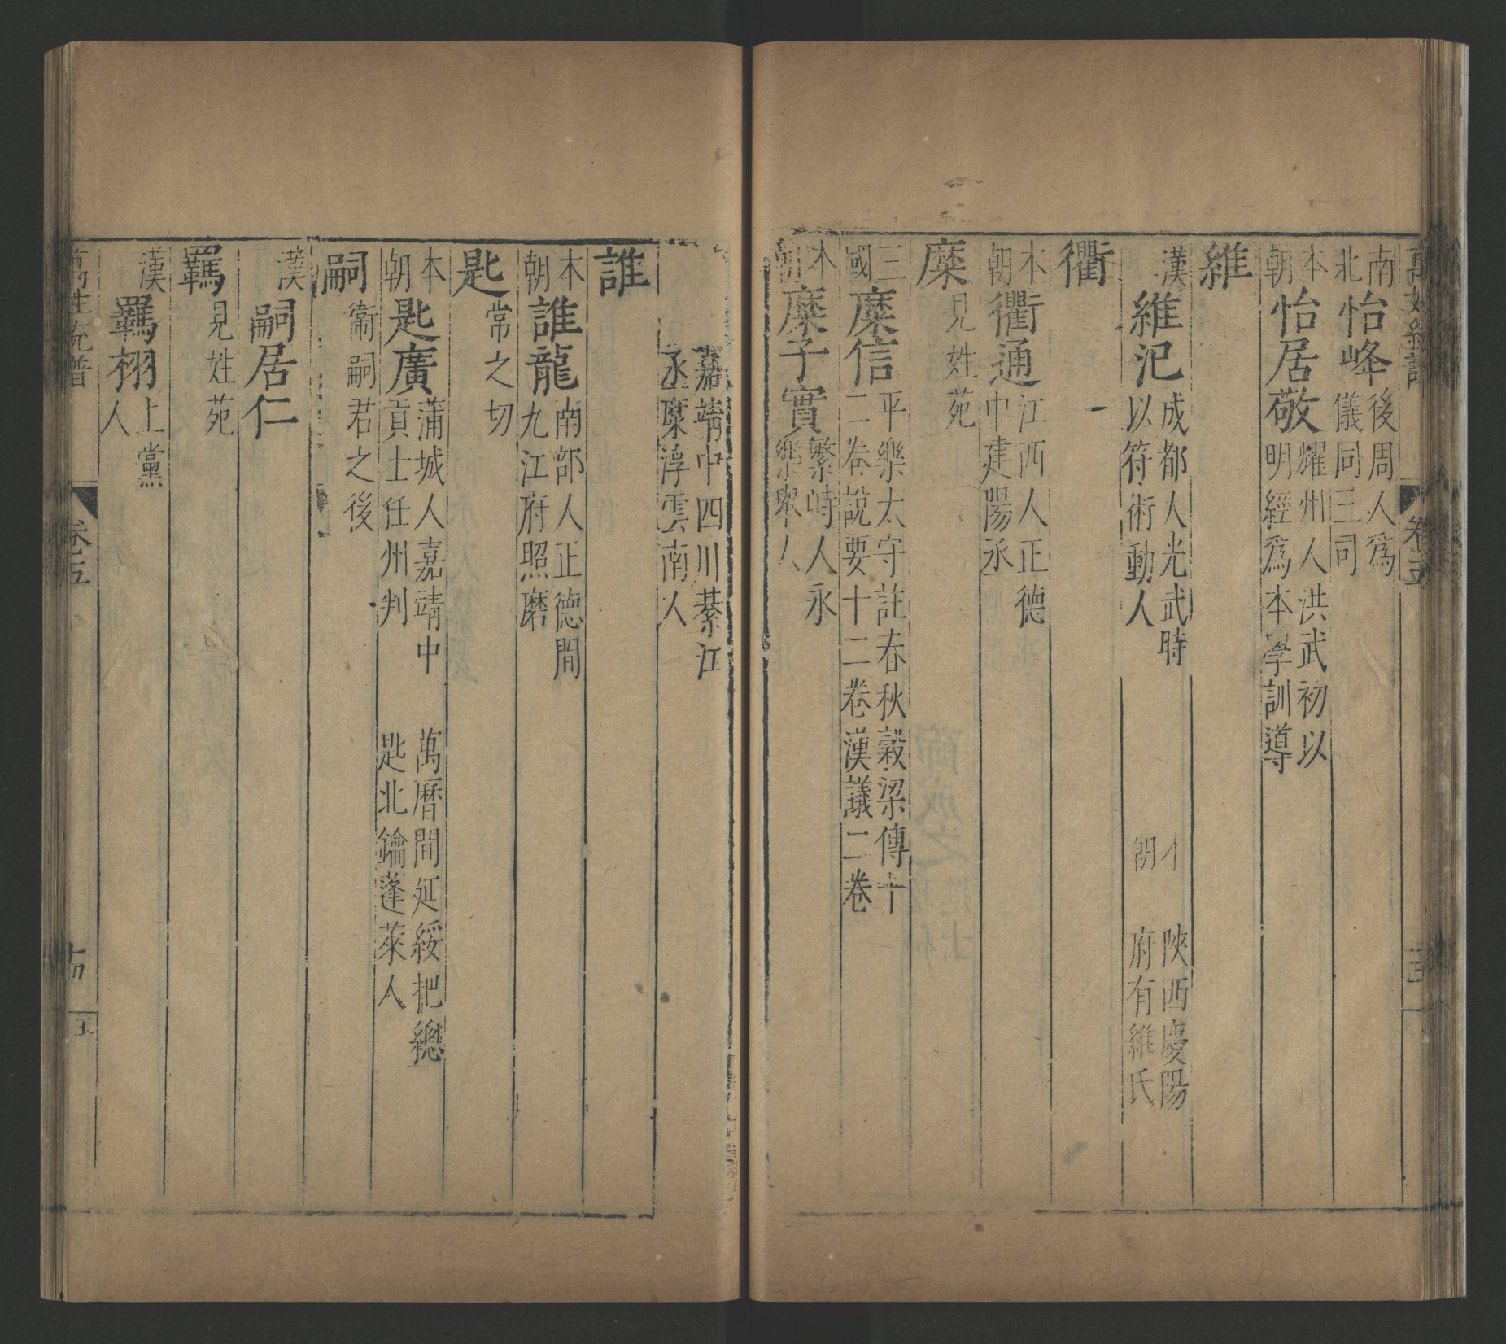 南北怡峰後周人爲儀同三司
本朝怡居敬耀州人洪武初以明經爲本學訓導
維
漢維汜成都人光武時以符術動人 陝西慶陽府有維氏
衢
本朝衢通江西人正德中建陽丞
糜見姓苑
三國糜信平樂太守註春秋穀梁傳十二卷說要十二卷漢議二卷
本朝糜子實繁峙人永樂舉人
嘉靖中四川綦江丞糜淳雲南人
誰
本朝誰龍南部人正德間九江府照磨
匙常之切
本朝匙廣蒲城人嘉靖中貢士任州判 萬曆間延綏把總匙北鑰蓬萊人
嗣衛嗣君之後
漢嗣居仁
羈見姓苑
漢羈栩上黨人
萬姓統譜 卷五